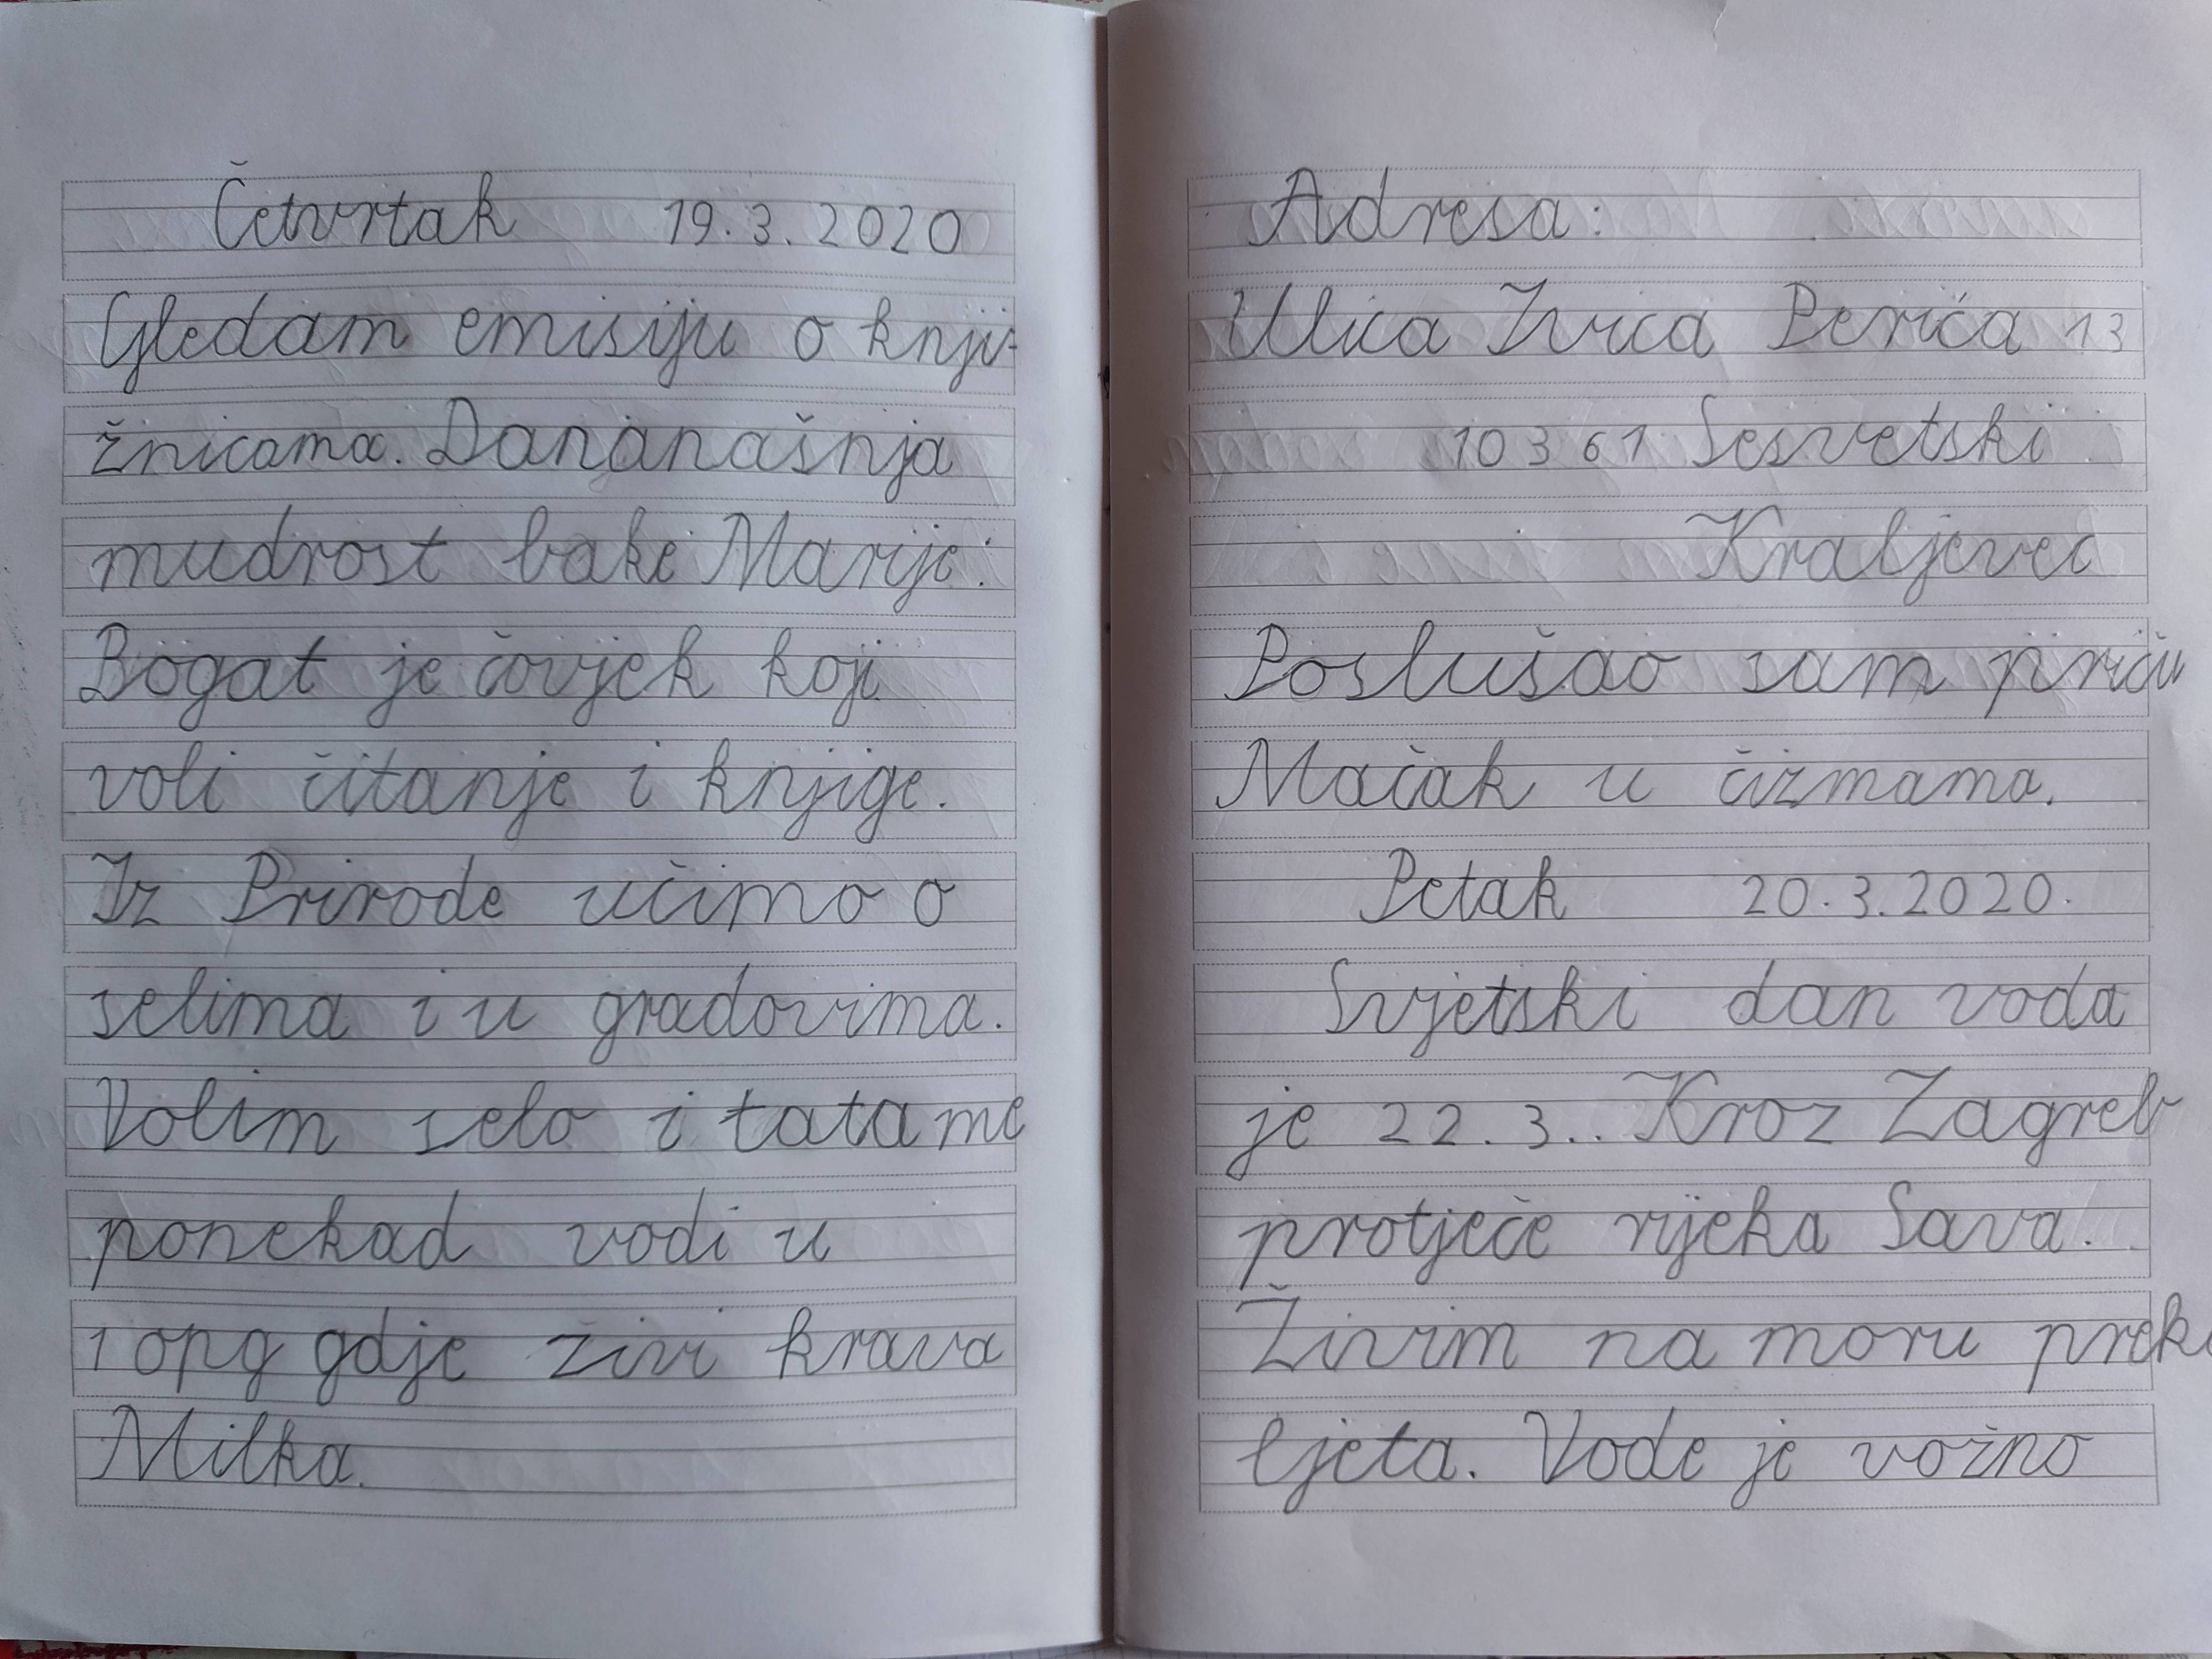 Četvrtak 19.3.2020
Gledam emisiju o knji-
žnicama. Dananašnja
mudrost bake Marije:
Bogat je čovjek koji
voli čitanje i knjige.
Iz Prirode učimo o
selima i u gradovima.
Volim selo i tata me
ponekad vodi u
1 opg gdje živi krava
Milka.
Adresa:
Ulica Ivica Perića 13
10361 Sesvetski
Kraljevec
Poslušao sam priču
Mačak u čizmama.
Petak 20.3.2020.
Svjetski dan voda
je 22.3.. Kroz Zagreb
protječe rijeka Sava.
Živim na moru preko
ljeta. Vode je važno